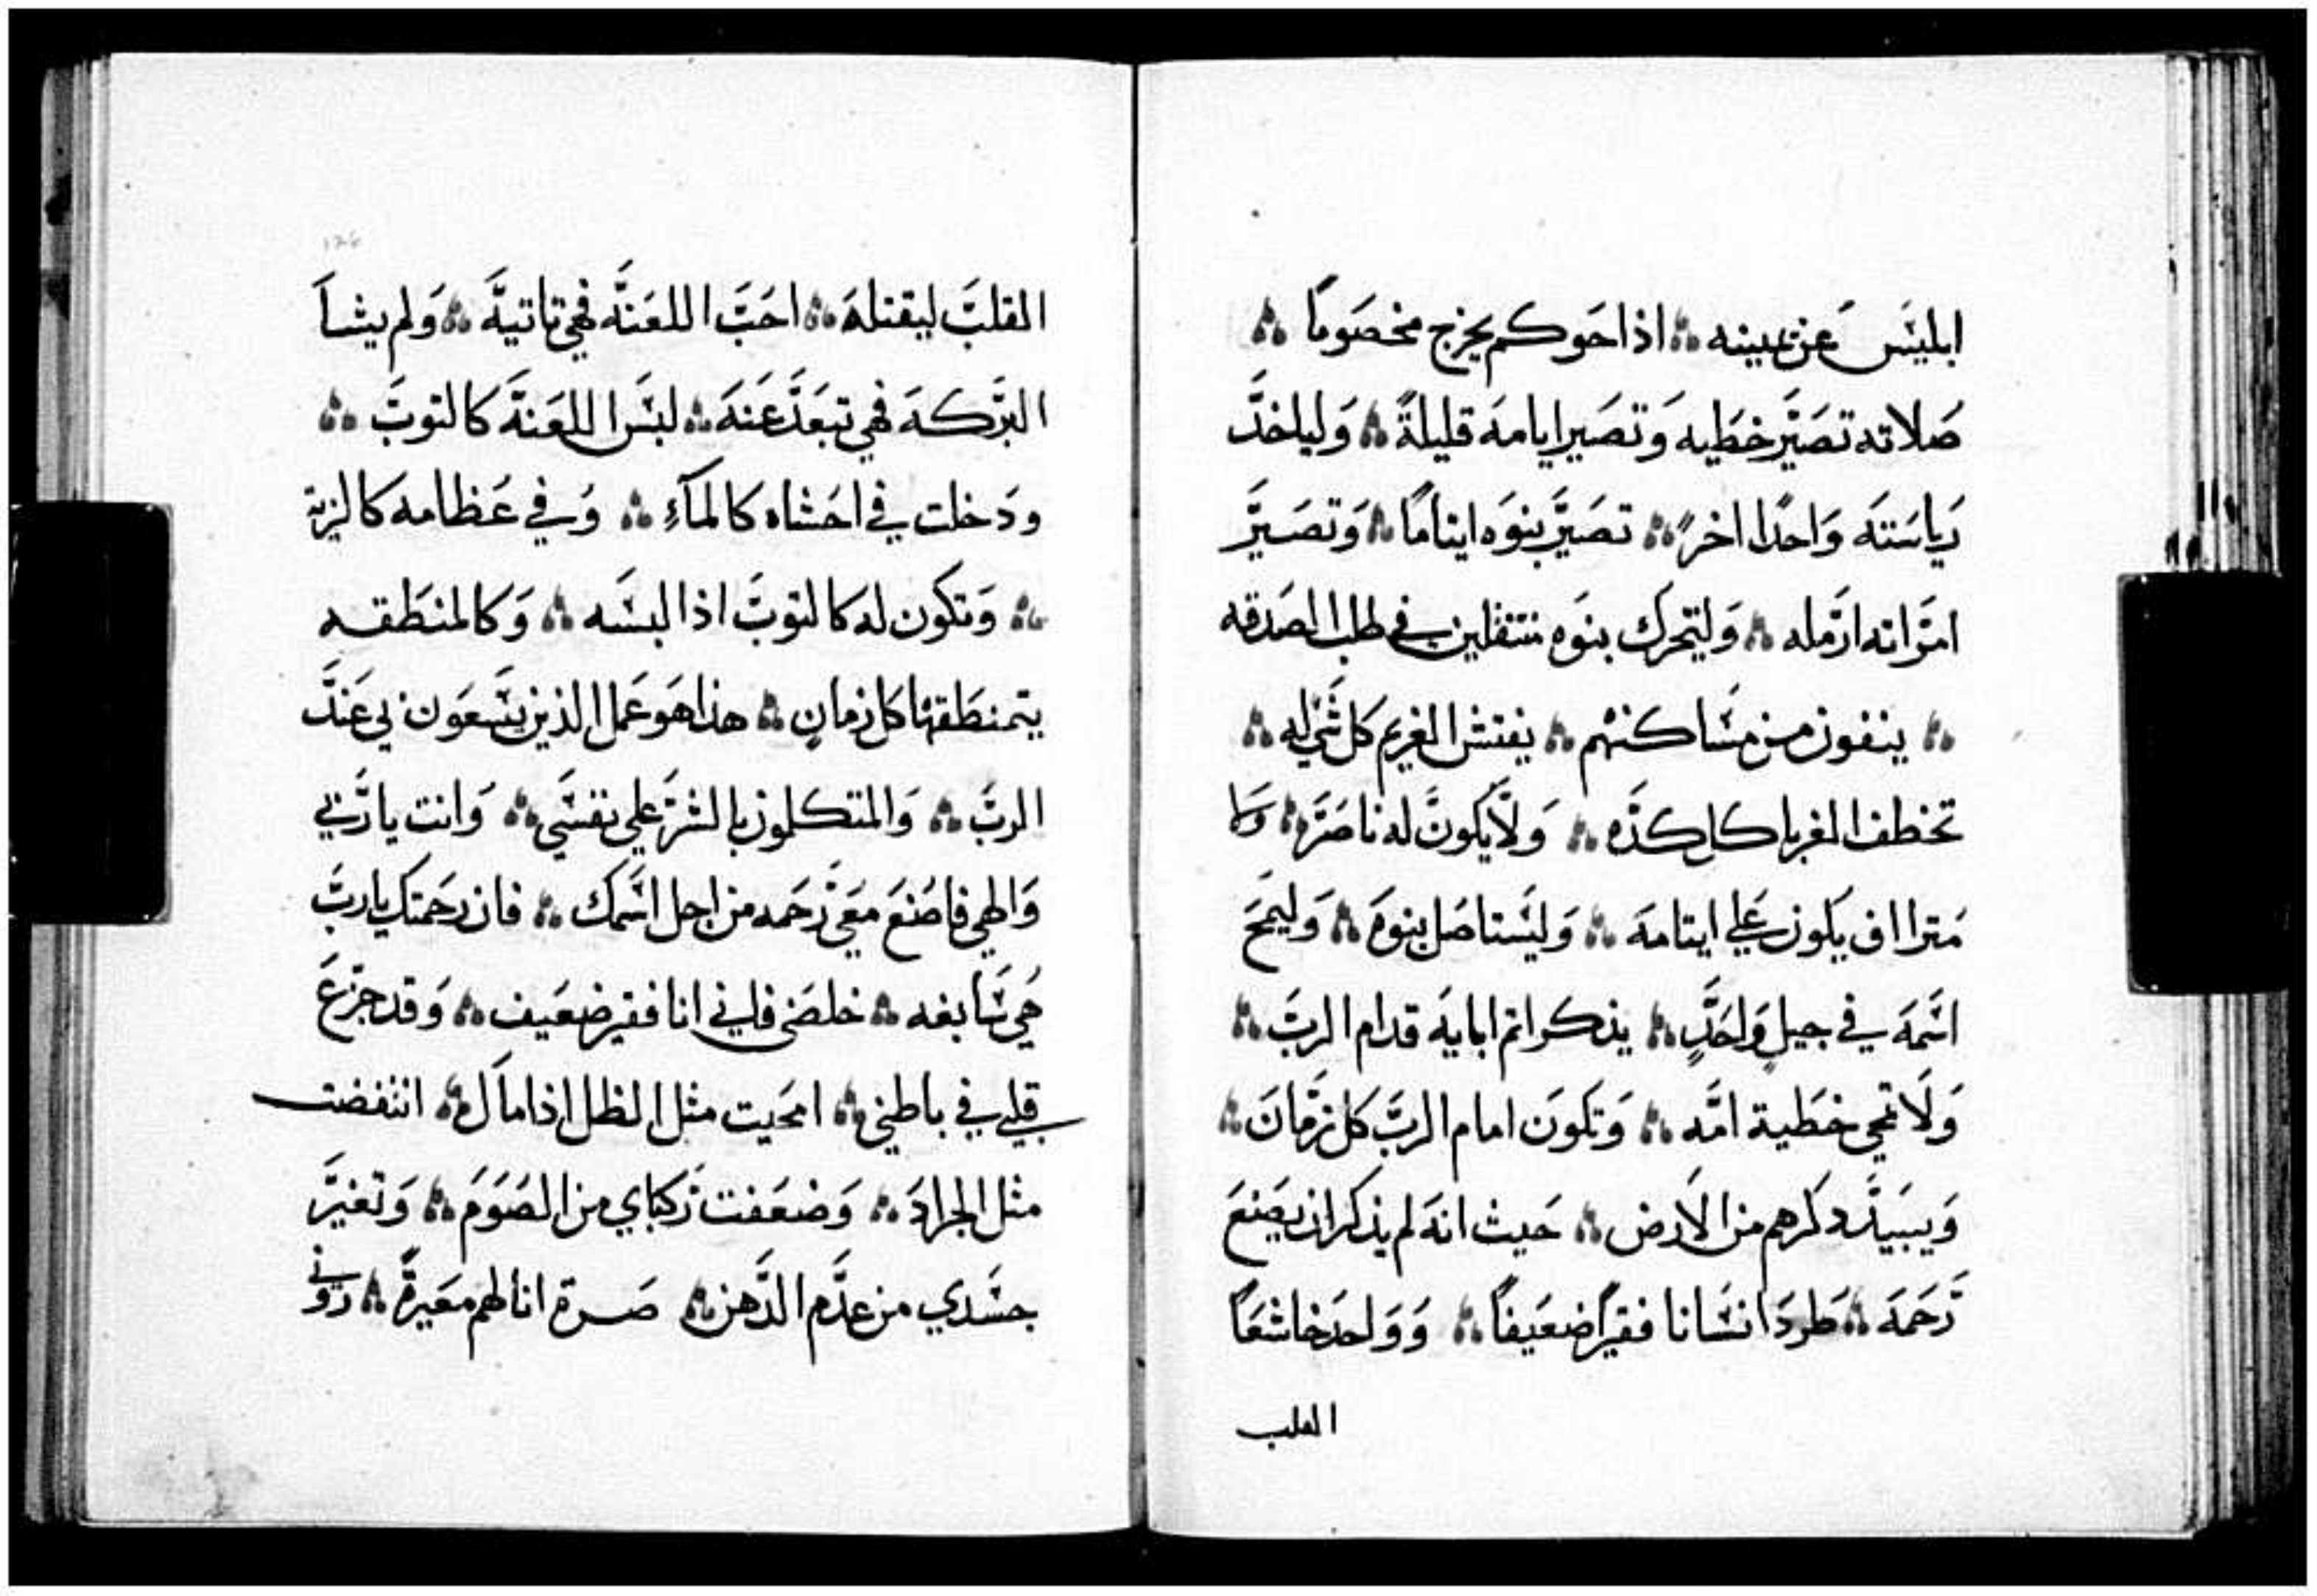 ابليَس عَن يمينه ؞ اذا حَوكم يخرج مخصَومًا ؞
صَلاته تصَيّر خطَيه وَتصَير ايامهَ قليلةً ؞ وَلياخدَّ
رَياسَتهَ وَاحدًا اخرً ؞ تصَيَّر بنوَه ايتامًا ؞ وَتصَيرَّ
امرَّاته ارَمله ؞ وَليتحرك بنوَه منتقلين في طلب الصَدقه
؞ ينفون من مسَاكنهم ؞ يفتش الغريم كل شَي له ؞
تخطف الغربا كل كدَّه ؞ وَلاَّ يكونَ له ناصَرًا ؞ وَلا
مَتراَاف يكون عَلي ايتامهَ ؞ وَليَستاصَل بنوهَ ؞ وَليمحَ
اسَمهَ في جيلٍ وَاحَدٍّ ؞ يذكر اثم ابايهَ قدام الربَ ؞
وَلَا تمحي خطَية امَّه ؞ وَتكونَ امام الربَّ كل زمَانَ ؞
وَيبيَدَّ ذكرهم من الاَرض ؞ حَيث انهَ لم يذكر ان يصَنعَ
رَّحَمهَ ؞ طَردَ انسَانا فقيرًا ضعَيفًا ؞ وَوَاحدَ خاشعًا
القلب
القلبَّ ليقتلهَ ؞ احَبَّ اللعَنهَّ فهي تاتيهَّ ؞ وَلم يشاَ
البرَّكهَ فهي تبعَدَّ عَنهَ ؞ لبسَ اللعَنهَّ كالتوبَّ ؞
ودَخلت في احَشاه كالمآءِ ؞ وَفي عَظامه كالزيت
؞ وَتكون له كالتوبَّ اذا لبسَه ؞ وَكالمنطَقه
يتمنطَق بها كل زمانٍ ؞ هذا هوَ عَمل الذين يسَعَون بي عَندَّ
الربَّ ؞ وَالمتكلون بالشرَّ علي نفسَي ؞ وَانت يا رَّبي
وَالهي فاصَنعَ معَي رَّحَمه من اجل اسَّمك ؞ فان رَحَمتك يا ربَّ
هَي سَابغه ؞ خلصَني فاني انا فقير ضعَيف ؞ وَقد جزعَ
قلبي في باطني ؞ امحَيت مثل الظل اذا مآل ؞ انتفضت
مثل الجرادَ ؞ وَضعَفت رَّكباي من الصَوَمَ ؞ وَتغيرَّ
جسَدي من عدَّم الدَّهن ؞ صَرة انا لهم معَيرةً ؞ رَوَني